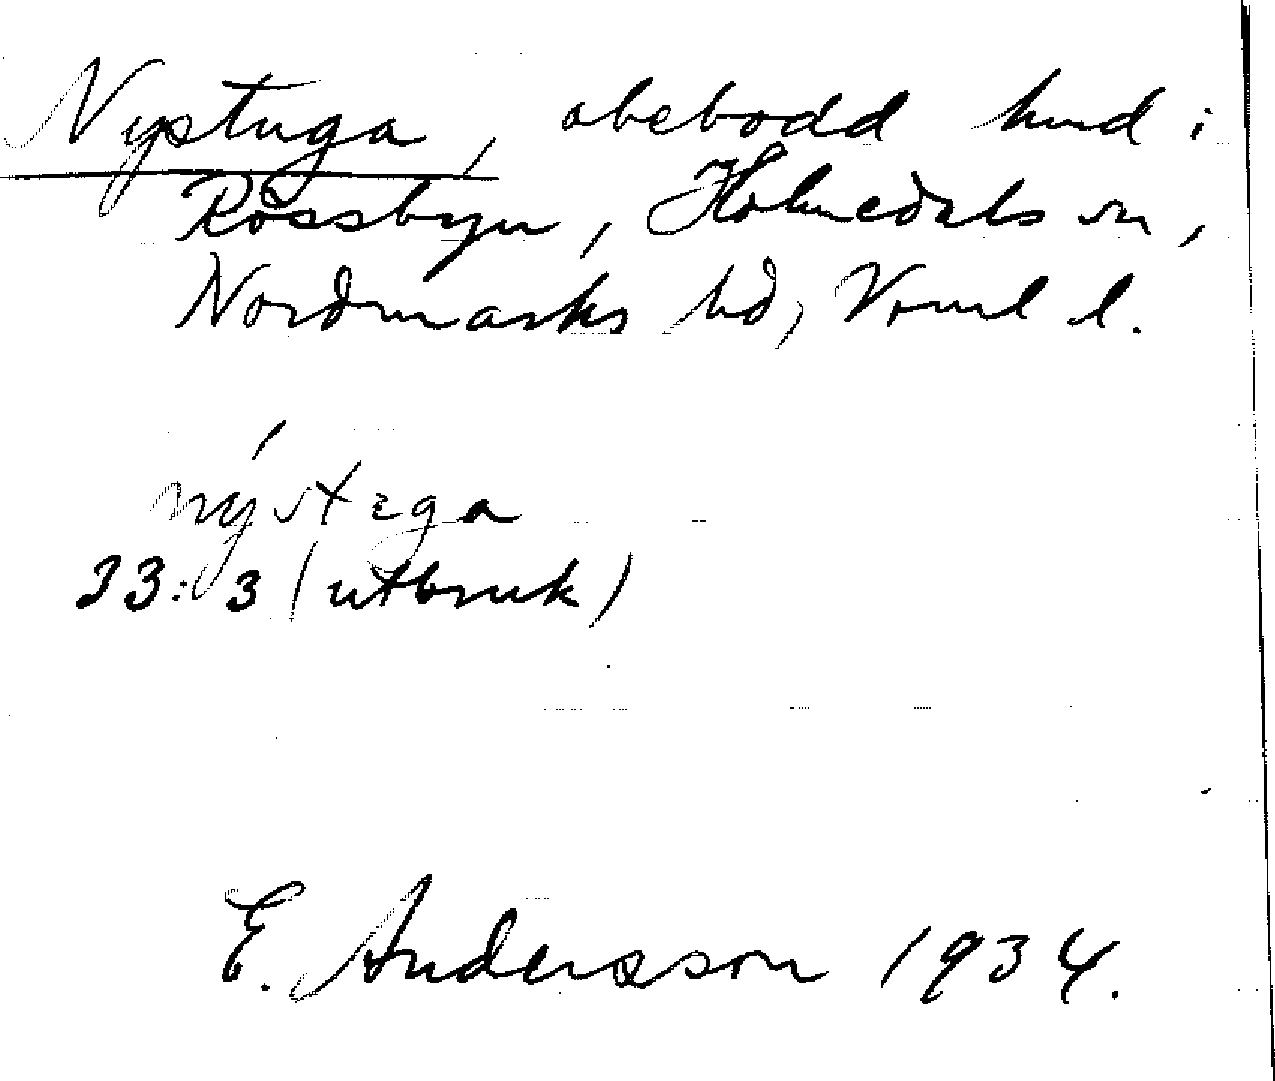 Nystuga, obebodd hmd i
Rössbyn, Holmedals sn,
Nordmarks hd, Vrml l.
nýstega
33:3 (utbruk)
E. Andersson 1934.